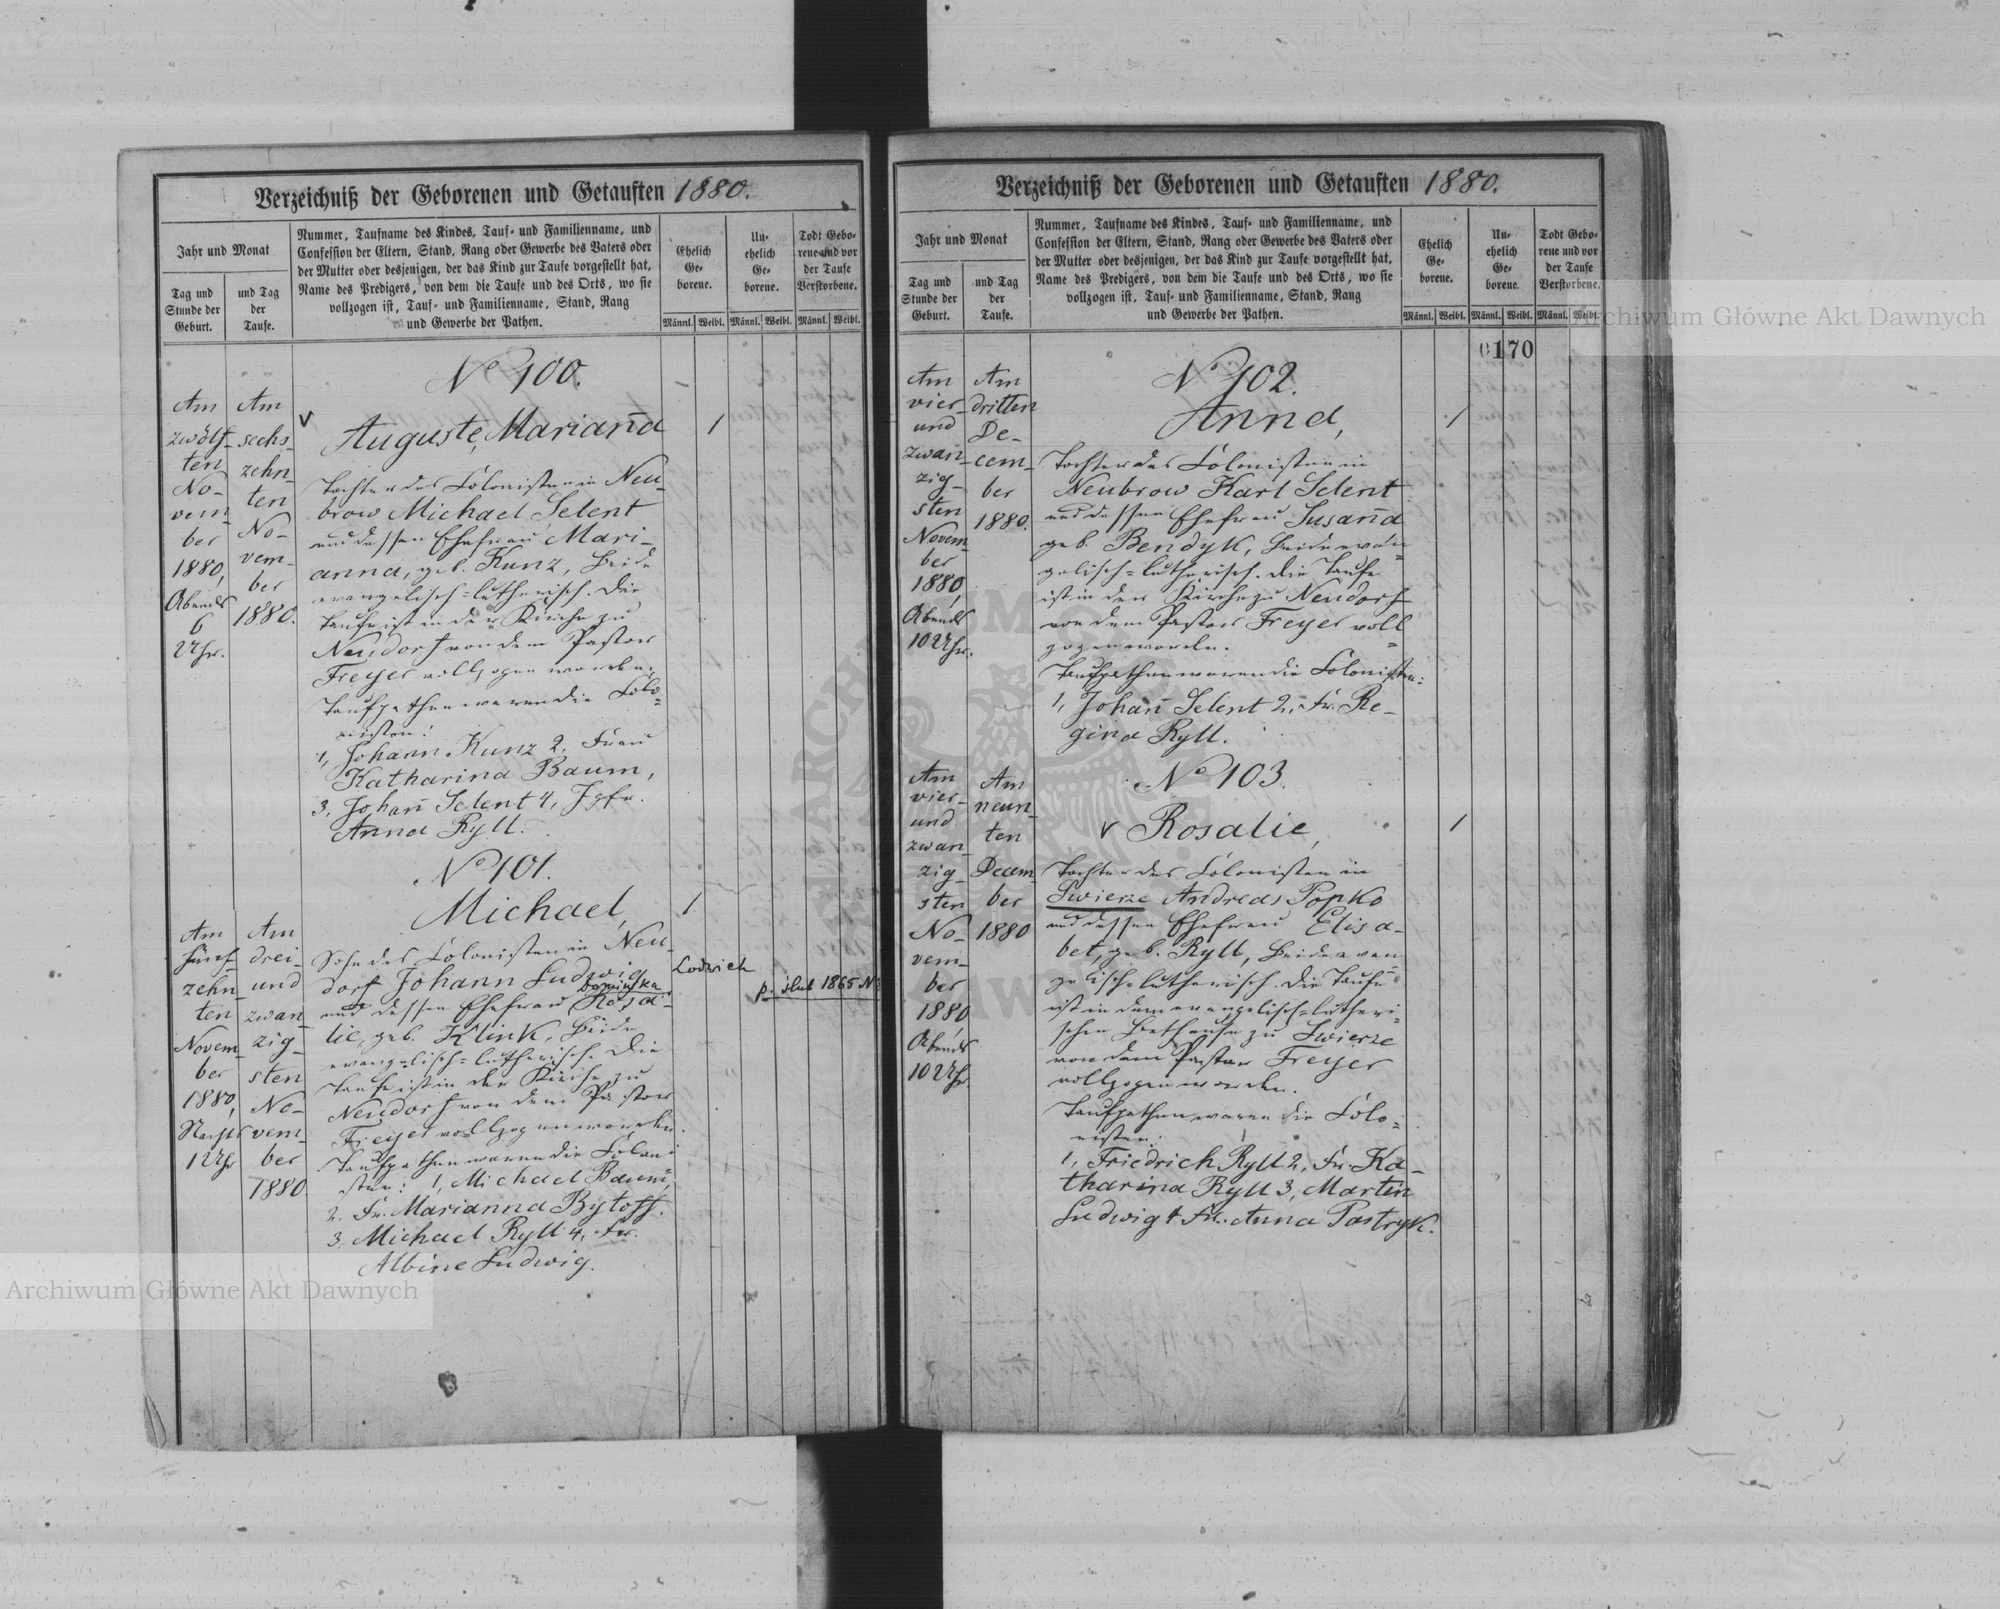 Verzeichniß der Geborenen und Getauften 1880.
Jahr und Monat
Tag und
Stunde der
Geburt.
und Tag
der
Taufe.
Nummer, Taufname des Kindes, Tauf- und Familienname, und
Confession der Eltern, Stand, Rang oder Gewerbe des Vaters oder
der Mutter oder desjenigen, der das Kind zur Taufe vorgestellt hat,
Name des Predigers, von dem die Taufe und des Orts, wo sie
vollzogen ist, Tauf- und Familienname, Stand, Rang
und Gewerbe der Pathen.
Ehelich
Ge-
borene.
Un-
ehelich
Ge-
borene.
Todt Gebo-
rene und vor
der Taufe
Verstorbene.
Männl. Weibl. Männl. Weibl. Männl. Weibl.
Am
zwölf-
ten
No-
vem-
ber
1880,
Abends
6
Uhr.
Am
sechs-
zehn-
ten
No-
vem-
ber
1880.
No 100.
v
Auguste, Marian̄a
1
Tochter des Colonisten in Neu-
brow Michael Selent
und dessen Ehefrau Mari-
anna, geb. Kunz, Beide
evangelisch=lutherisch. Die
Taufe ist in der Kirche zu
Neudorf von dem Pastor
Freyer vollzogen worden.
Taufpathen waren die Colo=
nisten:
1, Johann Kunz 2, Frau
Katharina Baum,
3, Johan̄ Selent 4, Jgfr.
Anna Ryll.
Am
fünf-
zehn-
ten
Novem-
ber
1880,
Nachts
1 Uhr
Am
drei-
und
zwan-
zig-
sten
No-
vem-
ber
1880.
No 101.
Michael,
1
Sohn des Colonisten in Neu-
dorf Johann Ludwig
Lodwich
p. ślub 1865 N
und dessen Ehefrau Rosa-
lie, geb. Klink, Beide
evangelisch=lutherisch. Die
Taufe ist in der Kirche zu
Neudorf von dem Pastor
Freyer vollzogen worden.
Taufpathen waren die Coloni
sten: 1, Michael Baum,
2. Fr. Marianna Bytoff.
3, Michael Ryll 4, Fr.
Albine Ludwig.
Verzeichniß der Geborenen und Getauften 1880.
Jahr und Monat
Tag und
Stunde der
Geburt.
und Tag
der
Taufe.
Nummer, Taufname des Kindes, Tauf- und Familienname, und
Confession der Eltern, Stand, Rang oder Gewerbe des Vaters oder
der Mutter oder desjenigen, der das Kind zur Taufe vorgestellt hat,
Name des Predigers, von dem die Taufe und des Orts, wo sie
vollzogen ist, Tauf- und Familienname, Stand, Rang
und Gewerbe der Pathen.
Ehelich
Ge-
borene.
Un-
ehelich
Ge-
borene.
Todt Gebo-
rene und vor
der Taufe
Verstorbene.
Männl. Weibl. Männl. Weibl. Männl. Weibl.
0170
Am
vier-
und
zwan-
zig-
sten
Novem-
ber
1880,
Abends
10 Uhr.
Am
dritten
De-
cem-
ber
1880.
No 102.
Anna,
1
Tochter des Colonisten in
Neubrow Karl Selent
und dessen Ehefrau Susan̄a
geb. Bendyk, Beide evan=
gelisch=lutherisch. Die Taufe
ist in der Kirche zu Neudorf
von dem Pastor Freyer voll=
zogen worden.
Taufpathen waren die Colonisten:
1, Johan̄ Selent 2, Fr. Re-
gina Ryll.
Am
vier-
und
zwan-
zig-
sten
No-
vem-
ber
1880
Abends
10 Uhr.
Am
neun-
ten
Decem-
ber
1880
No 103.
v Rosalie,
1
Tochter des Colonisten in
Swierze Andreas Popko
und dessen Ehefrau Elisa-
bet, geb. Ryll, Beide evan
gelisch=lutherisch. Die Taufe
ist in dem evangelisch=lutheri=
schen Bethause zu Swierze
von dem Pastor Freyer
vollzogen worden.
Taufpathen waren die Colo=
nisten:
1, Friedrich Ryll 2, Fr. Ka-
tharina Ryll 3, Martin
Ludwig 4 Fr. Anna Pastryk.
Archiwum Główne Akt Dawnych
Archiwum Główne Akt Dawnych